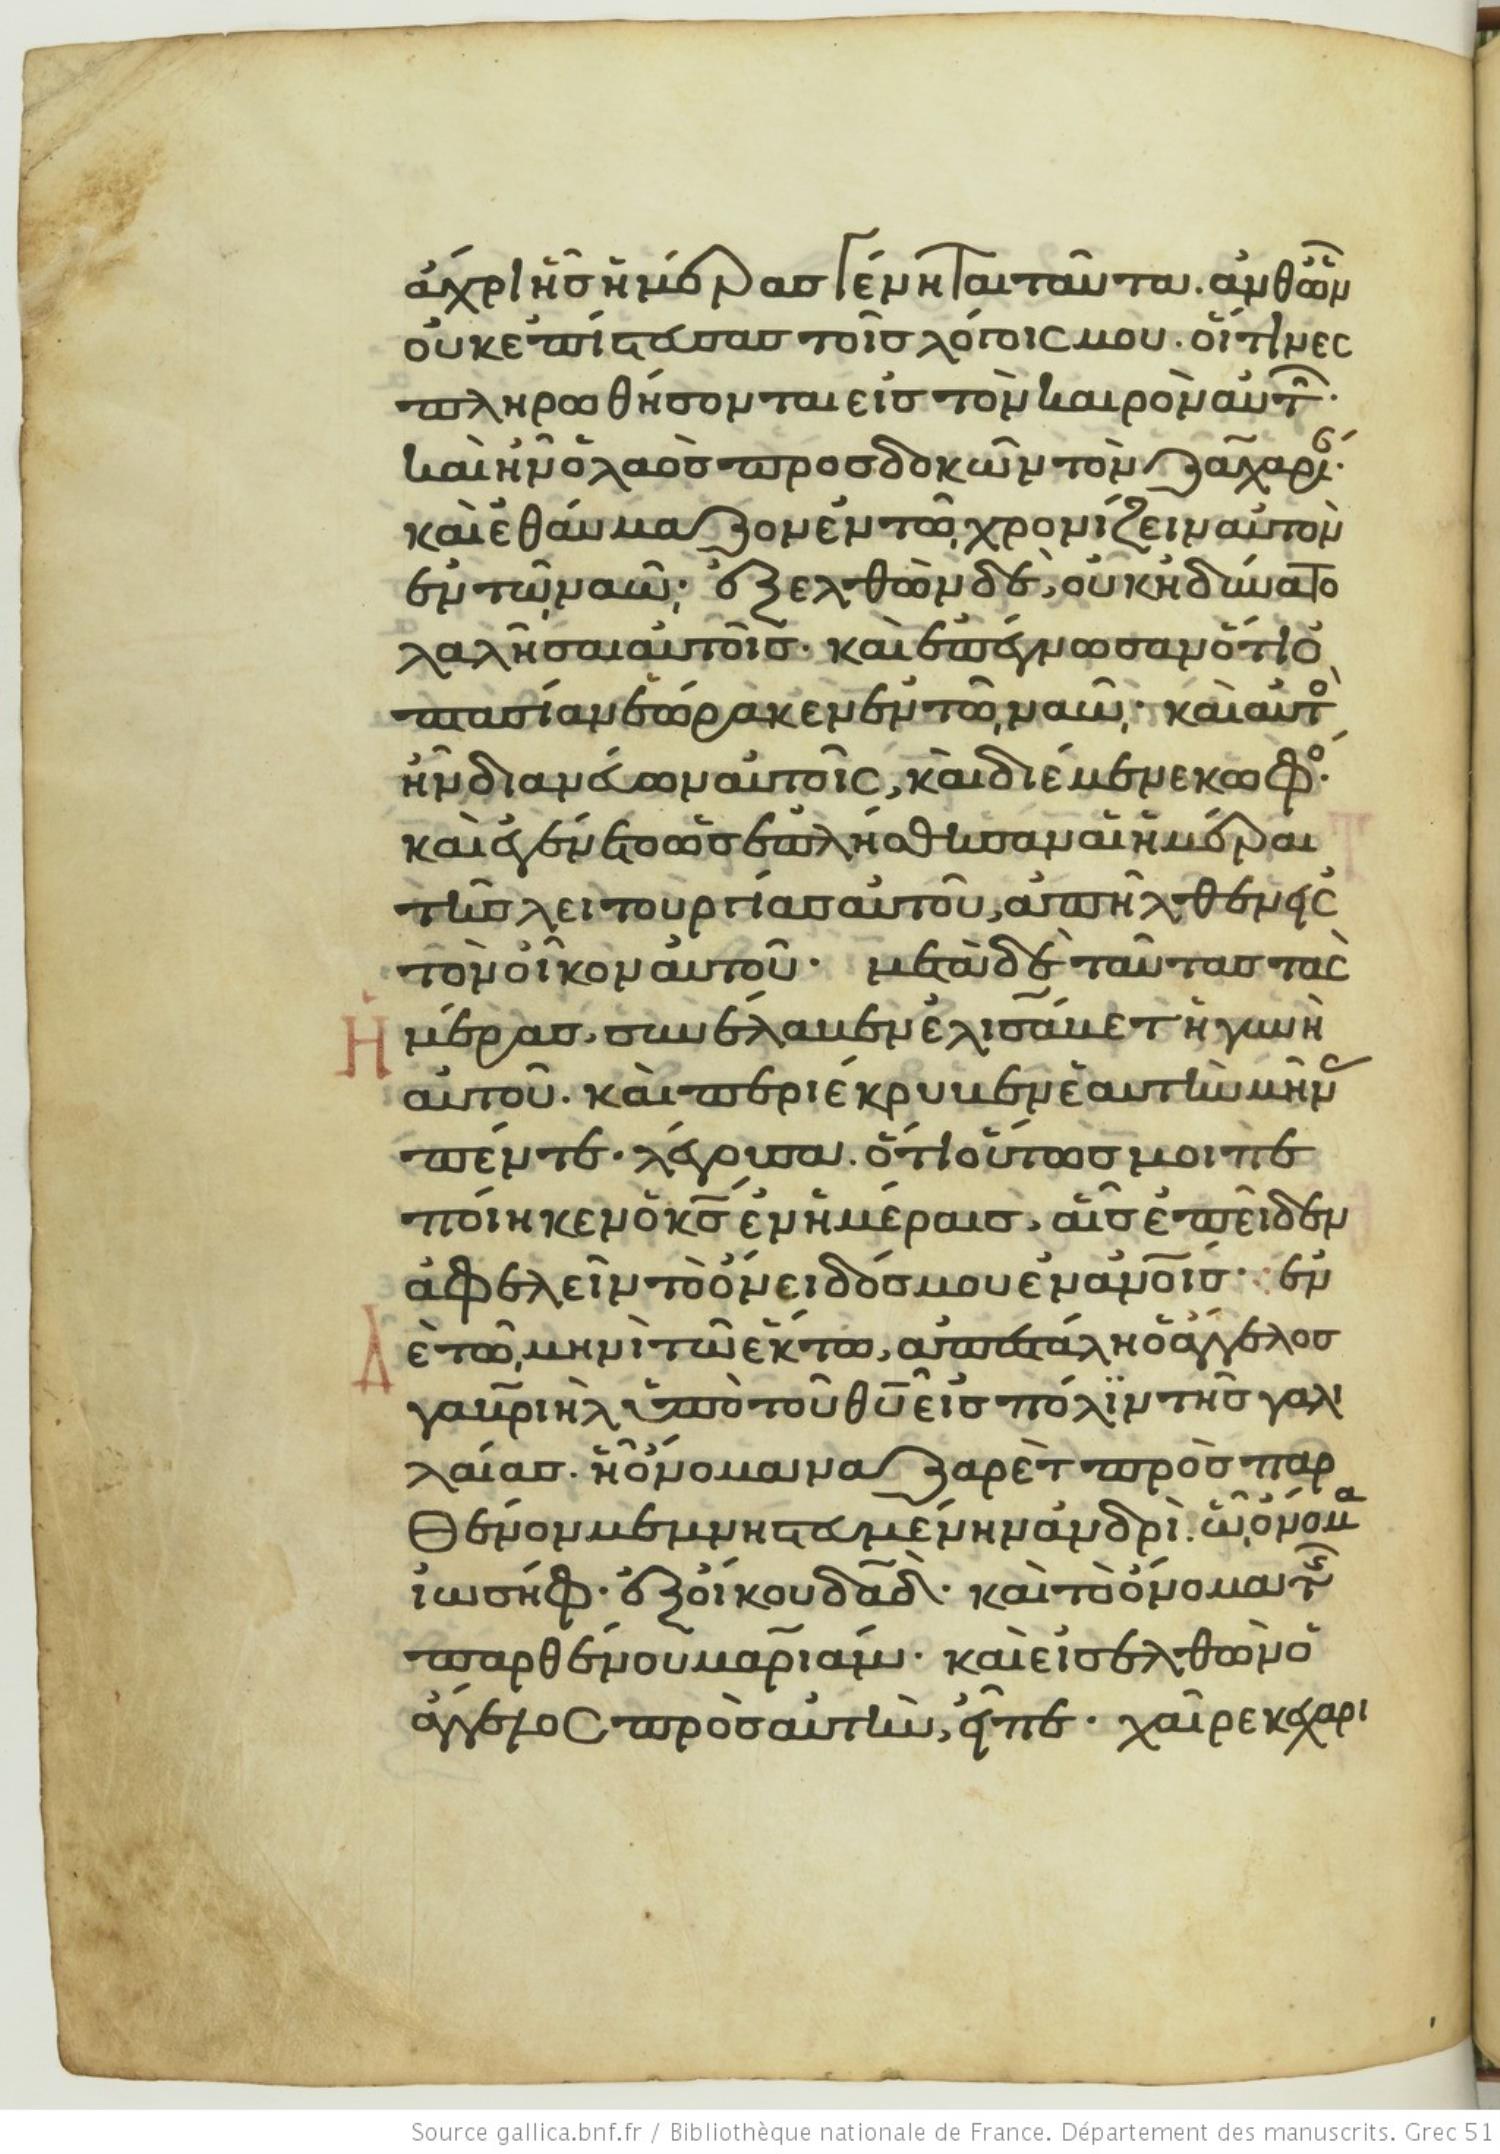 ἄχρι ἧς ἡμέρας γένηται ταῦτα. ἀνθ ὧν
οὐκ ἐπίστευσας τοῖς λόγοις μου. οἵτινες
πληρωθήσονται εἰς τὸν καιρὸν αὐτῶν.
καὶ ἦν ὁ λαὸς προσδοκῶν τὸν ζαχαρί.
καὶ ἐθαύμαζον ἐν τῶ χρονίζειν αὐτὸν
ἐν τῶ ναῶ· ἐξελθὼν δὲ, οὐκ ἠδύνατο
λαλῆσαι αὐτοῖς· καὶ ἐπέγνωσαν ὅτι ὀ
πτασίαν ἑώρακεν ἐν τῶ ναῶ· καὶ αὐτὸ
ἦν διανεύων αὐτοῖς, καὶ διέμενε κωφό·
καὶ ἐγένετο ὡς ἐπλήσθησαν αἱ ἡμέραι
τῆς λειτουργίας αὐτοῦ, ἀπῆλθεν εἰς
τὸν οἶκον αὐτοῦ· μετὰ δὲ ταύτας τὰς
Ἡμέρας, συνέλαβεν ἐλισάβετ ἡ γυνὴ
αὐτοῦ. καὶ περιέκρυβεν ἑαυτὴν μῆν
πέντε· λέγουσα. ὅτι οὕτως μοι πε
ποίηκεν ὁ κς ἐν ἡμέραις, αἷς ἐπεῖδεν
ἀφελεῖν τὸ ὄνειδός μου ἐν ανοις· ἐν
Δὲ τῶ μηνὶ τῶ ἕκτω, ἀπεστάλη ὁ ἄγγελος
γαβριὴλ ὑπὸ τοῦ θυ εἰς πόλϊν τῆς γαλι
λαίας. ἧ ὄνομα ναζαρὲτ πρὸς παρ
θένον μεμνηστευμένην ἀνδρὶ. ὧ ὄνομα
ἰωσήφ· ἐξ οἴκου δαδ· καὶ τὸ ὄνομα τῆς
παρθένου μαριάμ· καὶ εἰσελθὼν ὁ
ἄγγελος πρὸς αὐτὴν, εἶπε· χαῖρε κεχαρι
Source gallica.bnf.fr / Bibliothèque nationale de France. Département des manuscrits. Grec 51